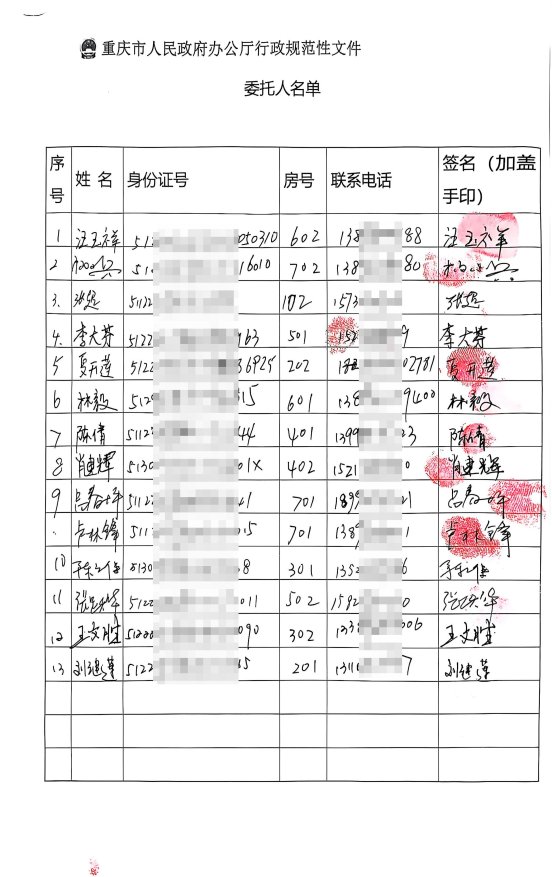 重庆市人民政府办公厅行政规范性文件
委托人名单
序号 姓名 身份证号 房号 联系电话 签名（加盖手印）
1 汪玉祥 512 050310 602 138 88 汪玉祥
2 51 16010 702 138 80
3. 张 5122 102 1573 张
4. 李大芬 5122 963 501 152 9 李大芬
5 夏开莲 5122 36925 202 02781 夏开莲
6 林毅 5129 515 601 138 9400 林毅
7 陈倩 5112 44 401 1399 23 陈倩
8 肖建辉 5130 01X 402 1521 0 肖建辉
9 5112 21 701 1899 21
卢林锋 511 015 701 1389 1 卢林锋
10 5130 8 301 1352 6
11 张 华 5122 011 502 1582 0 张 华
12 王文胜 51222 090 302 1338 006 王文胜
13 刘继 5122 65 201 13110 7 刘继